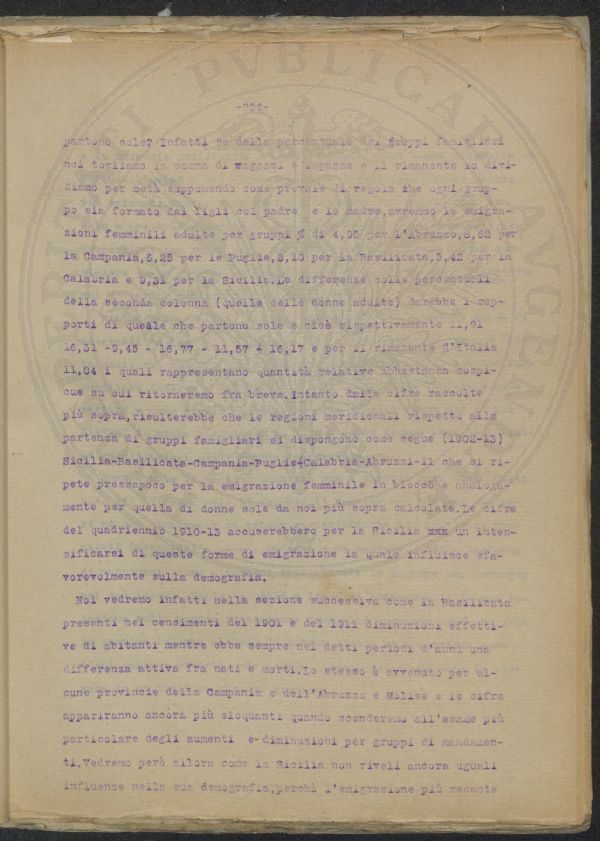 -256-
partono sole? Infatti se dalla percentuale dei gruppi famigliari
noi togliamo la somma di ragazzi e ragazze e il rimanente lo divi-
diamo per metà supponendo come prevale di regola che ogni grup-
po sia formato dai figli col padre e la madre,avremmo le emigra-
zioni femminili adulte per gruppi % di 4,95 per l'Abruzzo,8,62 per
la Campania,5,25 per le Puglie,8,10 per la Basilicata,5,42 per la
Calabria e 9,31 per la Sicilia.Le differenze colle percentuali
della seconda colonna (quelle delle donne adulte) darebbe i rap-
porti di quelle che partono sole e cioè rispettivamente 11,91
16,31 -9,45 - 16,77 - 11,57 - 16,17 e per il rimanente d'Italia
11,04 i quali rappresentano quantità relative abbastanza cospi-
cue su cui ritorneremo fra breve.Intanto dalle cifre raccolte
più sopra,risulterebbe che le regioni meridionali rispetto alla
partenza di gruppi famigliari si dispongono come segue (1902-13)
Sicilia-Basilicata-Campania-Puglie-Calabria-Abruzzi-il che si ri-
pete pressapoco per la emigrazione femminile in blocco e analoga-
mente per quella di donne sole da noi più sopra calcolate.Le cifre
del quadriennio 1910-13 accuserebbero per la Sicilia xxx un inten-
sificarsi di queste forme di emigrazione la quale influisce sfa-
vorevolmente sulla demografia.
Noi vedremo infatti nella sezione successiva come la Basilicata
presenti nei censimenti del 1901 e del 1911 diminuzioni effetti-
ve di abitanti mentre ebbe sempre nei detti periodi d'anni una
differenza attiva fra nati e morti.Lo stesso è avvenuto per al-
cune provincie della Campania e dell'Abruzzo e Molise e le cifre
appariranno ancora più eloquanti quando scenderemo all'esame più
particolare degli aumenti e-diminuzioni per gruppi di mandamen-
ti.Vedremo però allora come la Sicilia non riveli ancora uguali
influenze nella sua demografia,perchè l'emigrazione più recente